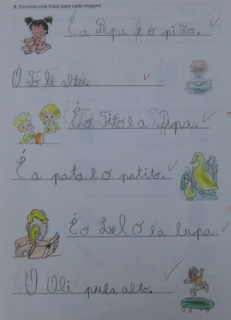 8. Escreve uma frase para cada imagem.
É a Pepa e o pião.
É o Tito e a Pepa.
É a pata e o patito.
É o Lelo e a lupa
O Oli pula alto.